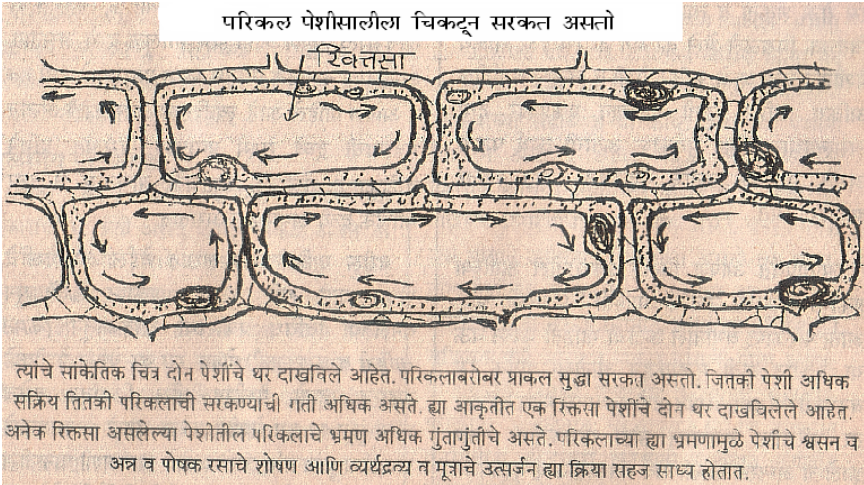 परिकल पेशीसालीला चिकटून सरकत असतो
रिक्तिसा
त्यांचे सांकेतिक चित्र दोन पेशींचे थर दाखविले आहेत. परिकलाबरोबर प्राकल सुद्धा सरकत असतो. जितकी पेशी अधिक
सक्रिय तितकी परिकलाची सरकण्याची गती अधिक असते. ह्या आकृतीत एक रिक्तसा पेशींचे दोन थर दाखविलेले आहेत.
अनेक रिक्तसा असलेल्या पेशीतील परिकलाचे भ्रमण अधिक गुंतागुंतीचे असते. परिकलाच्या ह्या भ्रमणामुळे पेशीचे श्वसन व
अन्न व पोषक रसाचे शोषण आणि व्यर्थद्रव्य व मूत्राचे उत्सर्जन ह्या क्रिया सहज साध्य होतात.